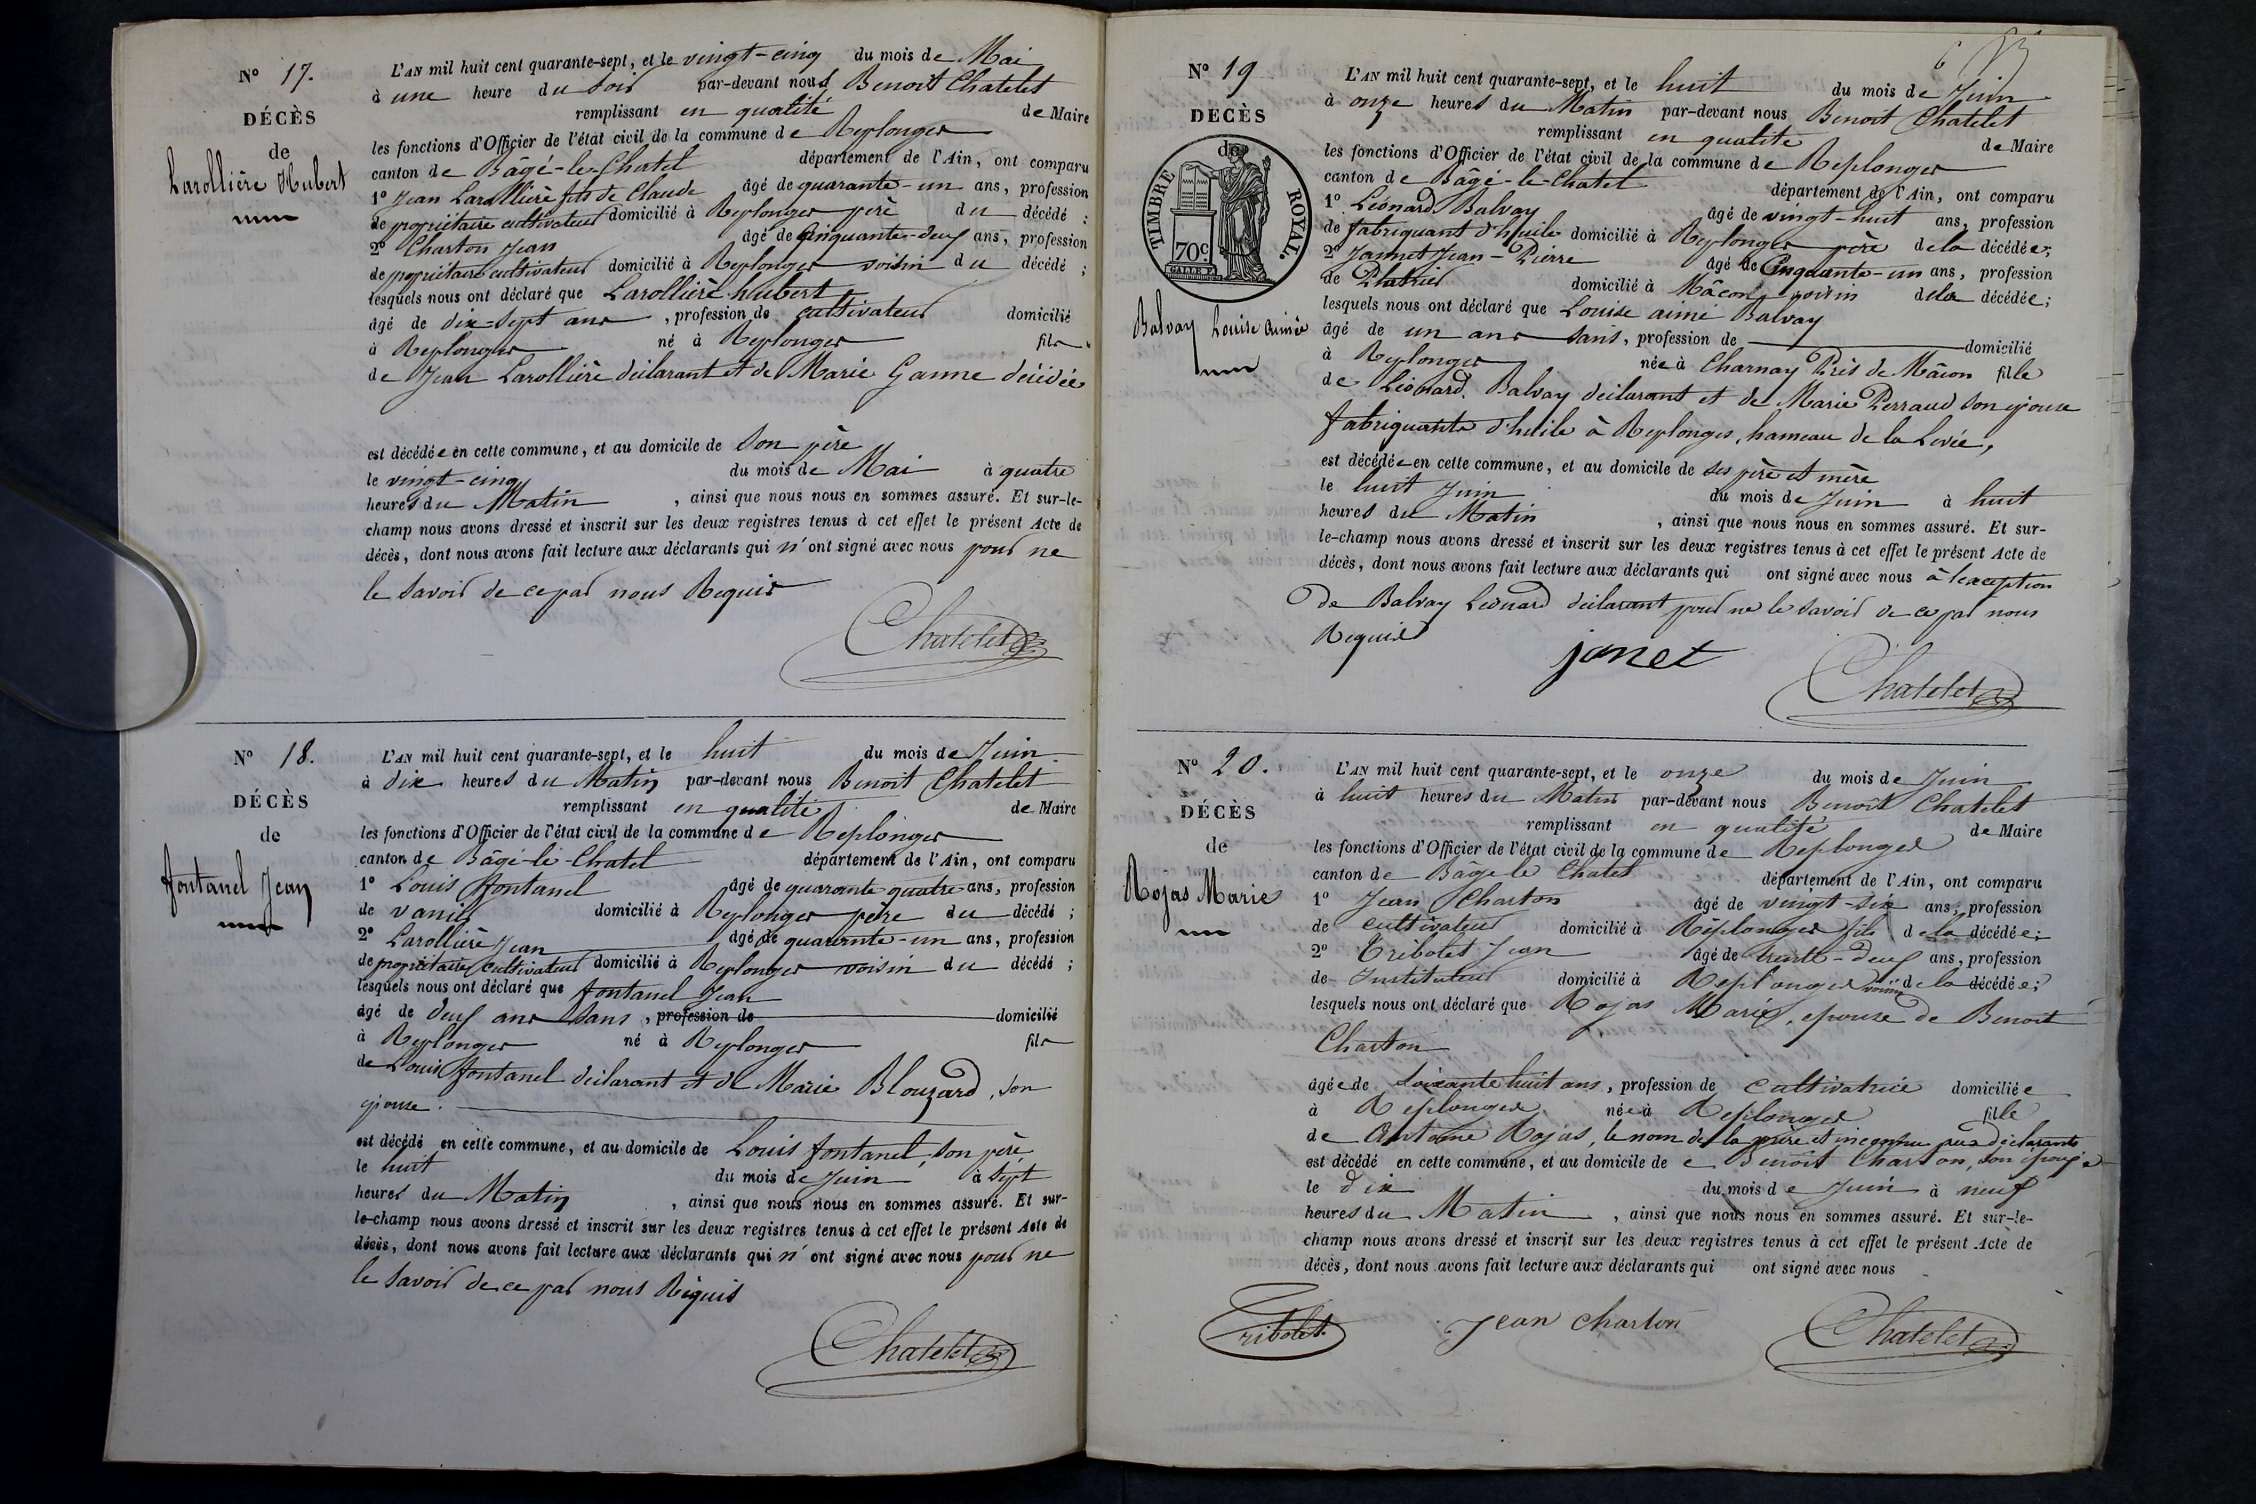 N° 17.
DÉCÈS
de
Larollière Hubert
L'AN mil huit cent quarante-sept, et le vingt-cinq du mois de Mai
à une heure du soir par-devant nous Benoit Chatelet
remplissant en qualité de Maire
les fonctions d'Officier de l'état civil de la commune de Replonges
canton de Bâgé-le-Chatel département de l'Ain, ont comparu
1° Jean Larollière fils de Claude âgé de quarante-un ans, profession
de propriétaire cultivateur domicilié à Replonges père du décédé ;
2° Charton Jean âgé de cinquante-deux ans, profession
de propriétaire cultivateur domicilié à Replonges voisin du décédé ;
lesquels nous ont déclaré que Larollière hubert
âgé de dix-sept ans, profession de cultivateur domicilié
à Replonges né à Replonges fils
de Jean Larollière déclarant et de Marie Ganne décédée
est décédé en cette commune, et au domicile de son père
le vingt-cinq du mois de Mai à quatre
heures du Matin, ainsi que nous nous en sommes assuré. Et sur-le-
champ nous avons dressé et inscrit sur les deux registres tenus à cet effet le présent Acte de
décès, dont nous avons fait lecture aux déclarants qui n'ont signé avec nous pour ne
le savoir de ce par nous Requis
Chatelet
N° 18.
DÉCÈS
de
fontanel Jean
L'AN mil huit cent quarante-sept, et le huit du mois de Juin
à dix heures du Matin par-devant nous Benoit Chatelet
remplissant en qualité de Maire
les fonctions d'Officier de l'état civil de la commune de Replonges
canton de Bâgé-le-Chatel département de l'Ain, ont comparu
1° Louis fontanel âgé de quarante quatre ans, profession
de vanier domicilié à Replonges père du décédé ;
2° Larollière Jean âgé de quarante-un ans, profession
de propriétaire cultivateur domicilié à Replonges voisin du décédé ;
lesquels nous ont déclaré que fontanel Jean
âgé de deux ans sans, profession de domicilié
à Replonges né à Replonges fils
de Louis fontanel déclarant et de Marie Blouzard, son
épouse.
est décédé en cette commune, et au domicile de Louis fontanel, son père
le huit du mois de Juin à sept
heures du Matin, ainsi que nous nous en sommes assuré. Et sur-
le-champ nous avons dressé et inscrit sur les deux registres tenus à cet effet le présent Acte de
décès, dont nous avons fait lecture aux déclarants qui n'ont signé avec nous pour ne
le savoir de ce par nous Requis
Chatelet
6
N° 19
DECÈS
de
TIMBRE ROYAL.
70c.
Balvay Louise Aimée
L'AN mil huit cent quarante-sept, et le huit du mois de Juin
à onze heures du Matin par-devant nous Benoit Chatelet
remplissant en qualité de Maire
les fonctions d'Officier de l'état civil de la commune de Replonges
canton de Bâgé-le-Chatel département de l'Ain, ont comparu
1° Léonard Balvay âgé de vingt-huit ans, profession
de fabriquant d'huile domicilié à Replonges père de la décédée;
2° Jannet Jean-Pierre âgé de Cinquante-un ans, profession
de Platrier domicilié à Mâcon voisin de la décédée;
lesquels nous ont déclaré que Louise aimé Balvay
âgé de un ans sans, profession de domicilié
à Replonges née à Charnay Près de Mâcon fille
de Léonard Balvay déclarant et de Marie Perraud son épouse
fabriquante d'huile à Replonges, hameau de la Levée,
est décédée en cette commune, et au domicile de ses père et mère
le huit Juin du mois de Juin à huit
heures du Matin, ainsi que nous nous en sommes assuré. Et sur-
le-champ nous avons dressé et inscrit sur les deux registres tenus à cet effet le présent Acte de
décès, dont nous avons fait lecture aux déclarants qui ont signé avec nous à l'exception
De Balvay Léonard déclarant pour ne le savoir de ce par nous
Requis
janet
Chatelet
N° 20.
DÉCÈS
de
Rojas Marie
L'AN mil huit cent quarante-sept, et le onze du mois de Juin
à huit heures du Matin par-devant nous Benoit Chatelet
remplissant en qualité de Maire
les fonctions d'Officier de l'état civil de la commune de Replonges
canton de Bâgé le Chatel département de l'Ain, ont comparu
1° Jean Charton âgé de vingt-six ans, profession
de cultivateur domicilié à Replonges fils de la décédée;
2° Tribolet Jean âgé de trente-deux ans, profession
de Instituteur domicilié à Replonges voisin de la décédée;
lesquels nous ont déclaré que Rojas Marie, epouse de Benoit
Charton
âgée de soixante huit ans, profession de cultivatrice domiciliée
à Replonges née à Replonges fille
de Antoine Rojas, le nom de la mère est inconnu aux déclarants
est décédé en cette commune, et au domicile de Benoit Charton, son époux
le dix du mois de Juin à neuf
heures du Matin, ainsi que nous nous en sommes assuré. Et sur-le-
champ nous avons dressé et inscrit sur les deux registres tenus à cet effet le présent Acte de
décès, dont nous avons fait lecture aux déclarants qui ont signé avec nous
Tribolet Jean Charton Chatelet